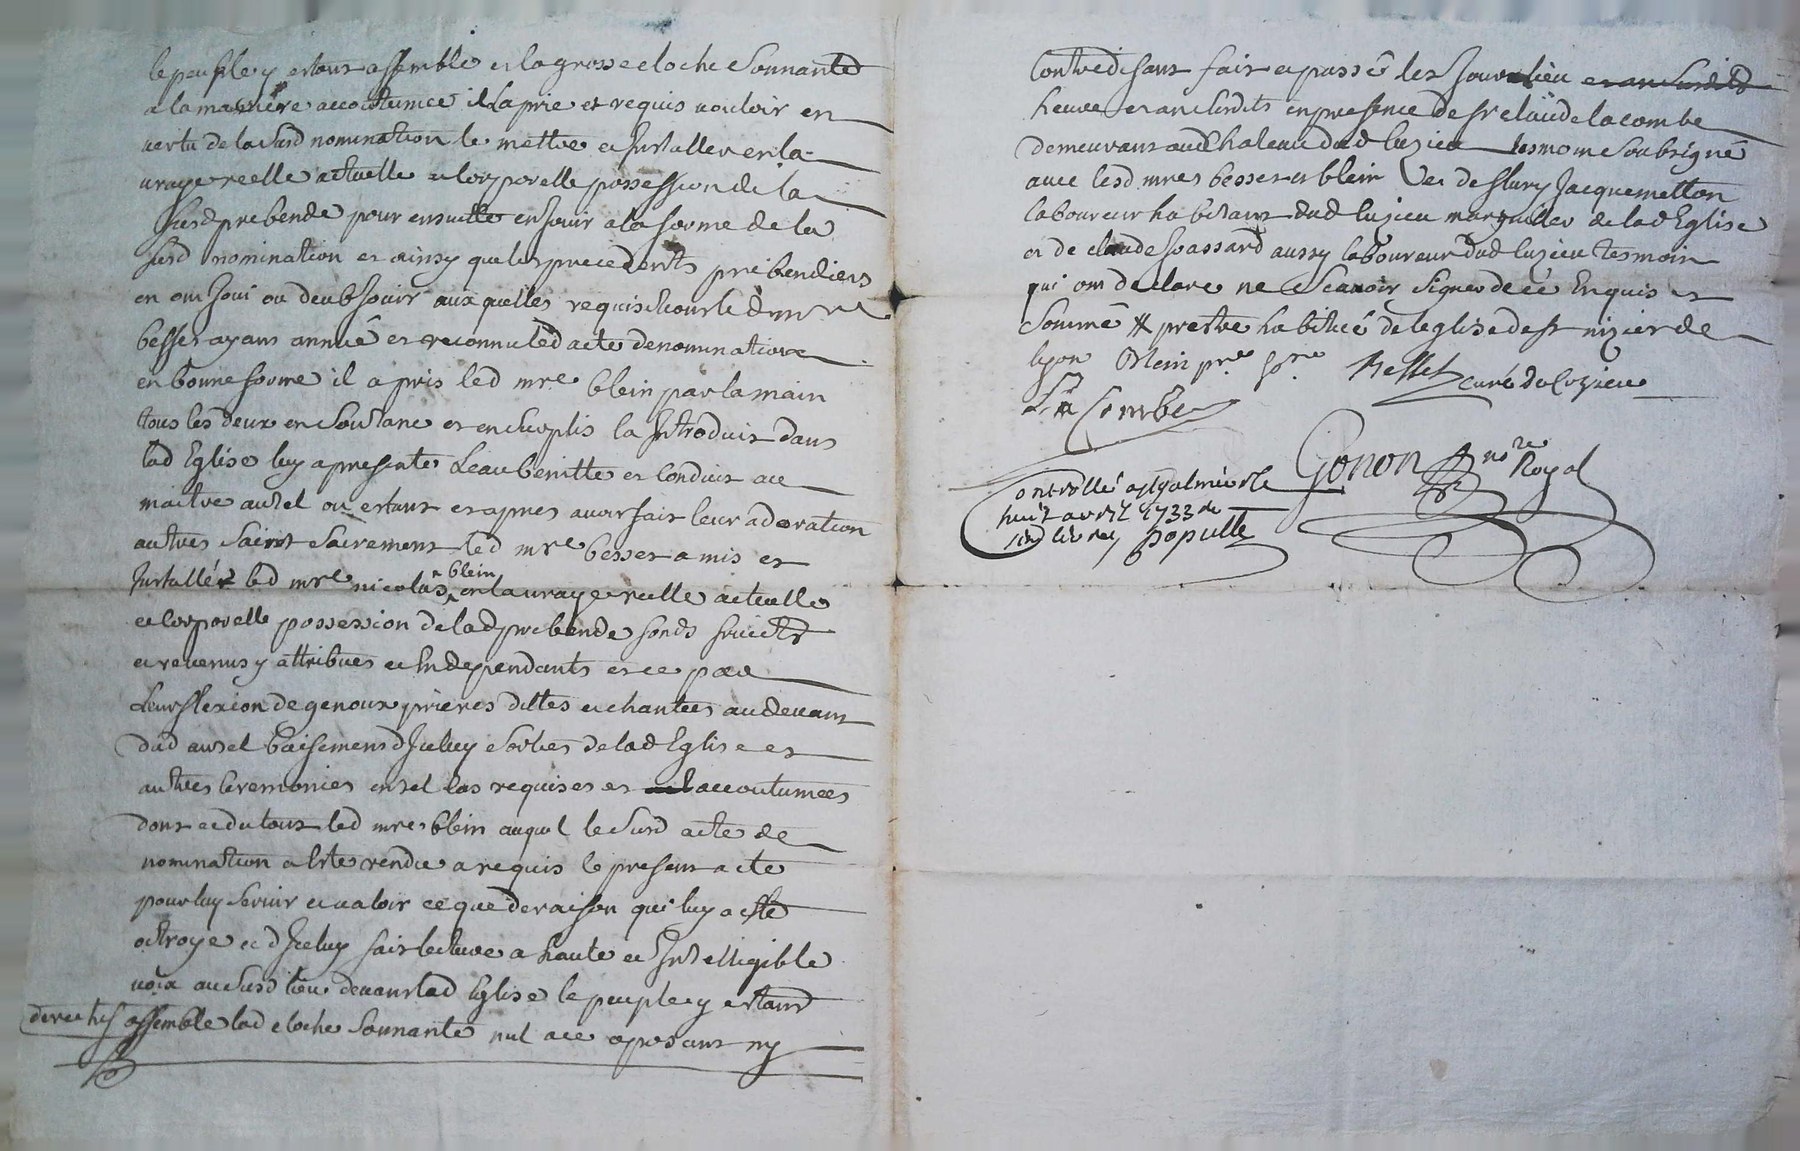 le peuple y estant assemblé et la grosse cloche sonnante
a la manière accoutumée il la prie et requis vouloir en
vertu de la susd nomination le mettre et Installer en la
vraye reelle actuelle et corporelle possession de la
susd prebende pour ensuitte en jouir a la forme de la
susd nomination et ainsy que les precedents prebendiers
en ont joui ou deub jouir aux quelles requisitions led mre
besset ayant annué et reconnu led acte de nomination
en bonne forme il a pris led mre blein par la main
tous les deux en soutane et en surplis la Introduit dans
lad Eglise luy a presente Leau benitte et conduit au
maitre autel ou estant et apres avoir fait leur adoration
au tres Saint Sacrement led mre besset a mis et
Installé led mre nicolas blein en la vraye reelle actuelle
et corporelle possession de lad prebende fonds fruicts
et revenus y attribues et Independants et ce par
Leur flexion de genoux prières dittes et chantees au devant
dud autel baisement d Iceluy sorties de lad Eglise et
autres Ceremonies en tel cas requises et accoutumees
dont et du tout led mre blein auquel le susd acte de
nomination a Esté rendu a requis le present acte
pour luy servir et valoir ce que de raison qui luy a esté
octroye et d Iceluy fait lecture a haute et Intelligible
voix au susd lieu devant lad Eglise le peuple y estant
derechef assemblé lad cloche sonnante nul ace oposant ny
Contredisant fait et passé les Jour lieu et an susdits
heure et an susdits en presence de sr claude lacombe
demeurant au Chateau dud luzieu tesmoin soubsigné
avec lesd mres besset et blein et de fleury Jacquemetton
laboureur habitant dud luzieu marguiller de lad Eglise
et de claude spassard aussy laboureur dud luzieu tesmoin
qui ont declare ne scavoir signer de ce Enquis et
sommé # prestre habitué de leglise de st nizier de
lyon Blein pre Besset curé de luzieu
La Combe
Gonon nore Royal
Controllé a
huit avril 1733 
Populle